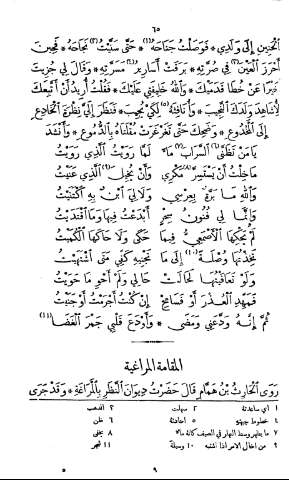 ٦٥
ٱلْحَنِينِ إِلَى وَلَدِي * فَوَصَلْتُ جَنَاحَهُ (١) * حَتَّى سَنَّيْتُ (٢) نَجَاحَهُ * فَحِينَ
أَحْرَزَ ٱلْعَيْنَ (٣) فِي صُرَّتِهِ * بَرَقَتْ أَسَارِيرُ (٤) مَسَرَّتِهِ * وَقَالَ لِي جُزِيتَ
خَيْرًا عَنْ خُطَا قَدَمَيْكَ * وَٱللهُ خَلِيفَتِي عَلَيْكَ * فَقُلْتُ أُرِيدُ أَنْ أَتْبَعَكَ
لِأُشَاهِدَ وَلَدَكَ ٱلنَّجِيبَ * وَأُنَافِثَهُ (٥) لِكَيْ يُجِيبَ * فَنَظَرَ إِلَيَّ نَظْرَةَ ٱلْخَادِعِ
إِلَى ٱلْمَخْدُوعِ * وَضَحِكَ حَتَّى تَغَرْغَرَتْ مُقْلَتَاهُ بِٱلدُّمُوعِ * وَأَنْشَدَ
يَا مَنْ تَظَنَّى (٦) ٱلسَّرَابَ (٧) مَاءً لَمَّا رَوَيْتُ ٱلَّذِي رَوَيْتُ
مَا خِلْتُ أَنْ يَسْتَسِرَّ (٨) مَكْرِي وَأَنْ يُخِيلَ (٩) ٱلَّذِي عَنَيْتُ
وَٱللهِ مَا بَرَّةٌ بِعِرْسِي وَلَا لِيَ ٱبْنٌ بِهِ ٱكْتَنَيْتُ
وَإِنَّمَا لِي فُنُونُ سِحْرٍ أَبْدَعْتُ فِيهَا وَمَا ٱقْتَدَيْتُ
لَمْ يَحْكِهَا ٱلْأَصْمَعِيُّ فِيمَا حَكَى وَلَا حَاكَهَا ٱلْكُمَيْتُ
تَخِذْتُهَا وُصْلَةً (١٠) إِلَى مَا تَجْنِيهِ كَفِّي مَتَى ٱشْتَهَيْتُ
وَلَوْ تَعَافَيْتُهَا لَحَالَتْ حَالِي وَلَمْ أَحْوِ مَا حَوَيْتُ
فَمَهِّدِ ٱلْعُذْرَ أَوْ فَسَامِحْ إِنْ كُنْتُ أَجْرَمْتُ أَوْ جَنَيْتُ
ثُمَّ إِنَّهُ وَدَّعَنِي وَمَضَى * وَأَوْدَعَ قَلْبِي جَمْرَ ٱلْغَضَا (١١)
المقامة المراغية
رَوَى ٱلْحَارِثُ بْنُ هَمَّامٍ قَالَ حَضَرْتُ دِيوَانَ ٱلنَّظَرِ بِٱلْمَرَاغَةِ * وَقَدْ جَرَى
١ أي ساعدته ٢ سهلت ٣ الذهب
٤ خطوط جبهته ٥ احادثه ٦ ظن
٧ ما يظهر وسط النهار في الصيف كانه ماء ٨ يخفى
٩ من اخال الامر اذا اشتبه ١٠ وسيلة ١١ شجر
٩ ٥